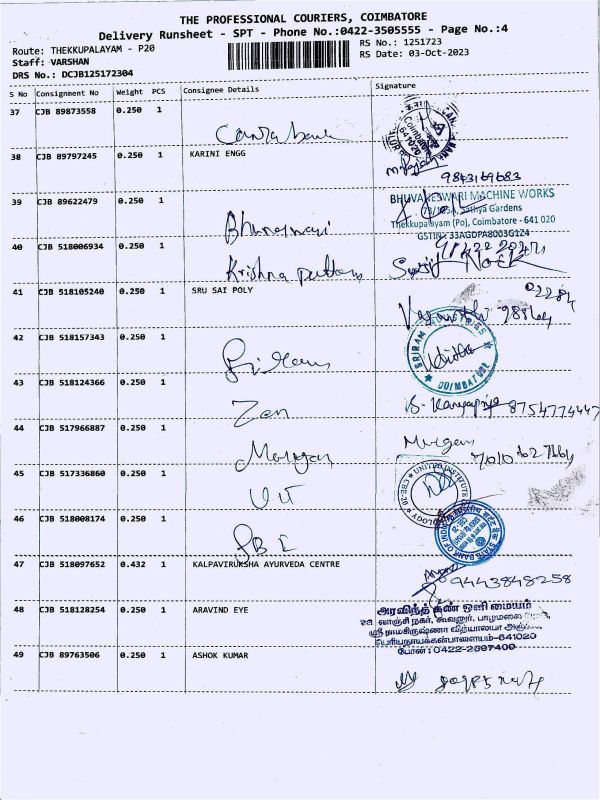 THE PROFESSIONAL COURIERS, COIMBATORE
Delivery Runsheet - SPT - Phone No.:0422-3505555 - Page No.:4
Route: THEKKUPALAYAM - P20
RS No.: 1251723
Staff: VARSHAN
RS Date: 03-Oct-2023
DRS No.: DCJB125172304
S No Consignment No Weight PCS Consignee Details Signature
37 CJB 89873558 0.250 1
Canara bank
Coimbatore
641020
38 CJB 89797245 0.250 1 KARINI ENGG
9843169683
39 CJB 89622479 0.250 1
BHUVANESWARI MACHINE WORKS
Sathya Gardens
Thekkupalayam (Po), Coimbatore - 641 020
GSTIN: 33AGDPA8003G1Z4
Bhuvaneswari
40 CJB 518006934 0.250 1
Krishna
41 CJB 518105240 0.250 1 SRU SAI POLY
42 CJB 518157343 0.250 1
Sriram
SRIRAM
COIMBATORE
43 CJB 518124366 0.250 1
Zen
8754774447
44 CJB 517966887 0.250 1
Murugan
Murgan
45 CJB 517336860 0.250 1
UIT
UNITED INSTITUTE
46 CJB 518008174 0.250 1
SBI
STATE BANK OF INDIA
47 CJB 518097652 0.432 1 KALPAVIRUKSHA AYURVEDA CENTRE
9443848258
48 CJB 518128254 0.250 1 ARAVIND EYE
அரவிந்த் கண் ஒளி மையம்
வாஞ்சி நகர், கூவனூர்,
ஸ்ரீ ராமகிருஷ்ணா வித்யாலயா
பெரியநாயக்கன்பாளையம்-641020
போன் : 0422-2697400
49 CJB 89763506 0.250 1 ASHOK KUMAR